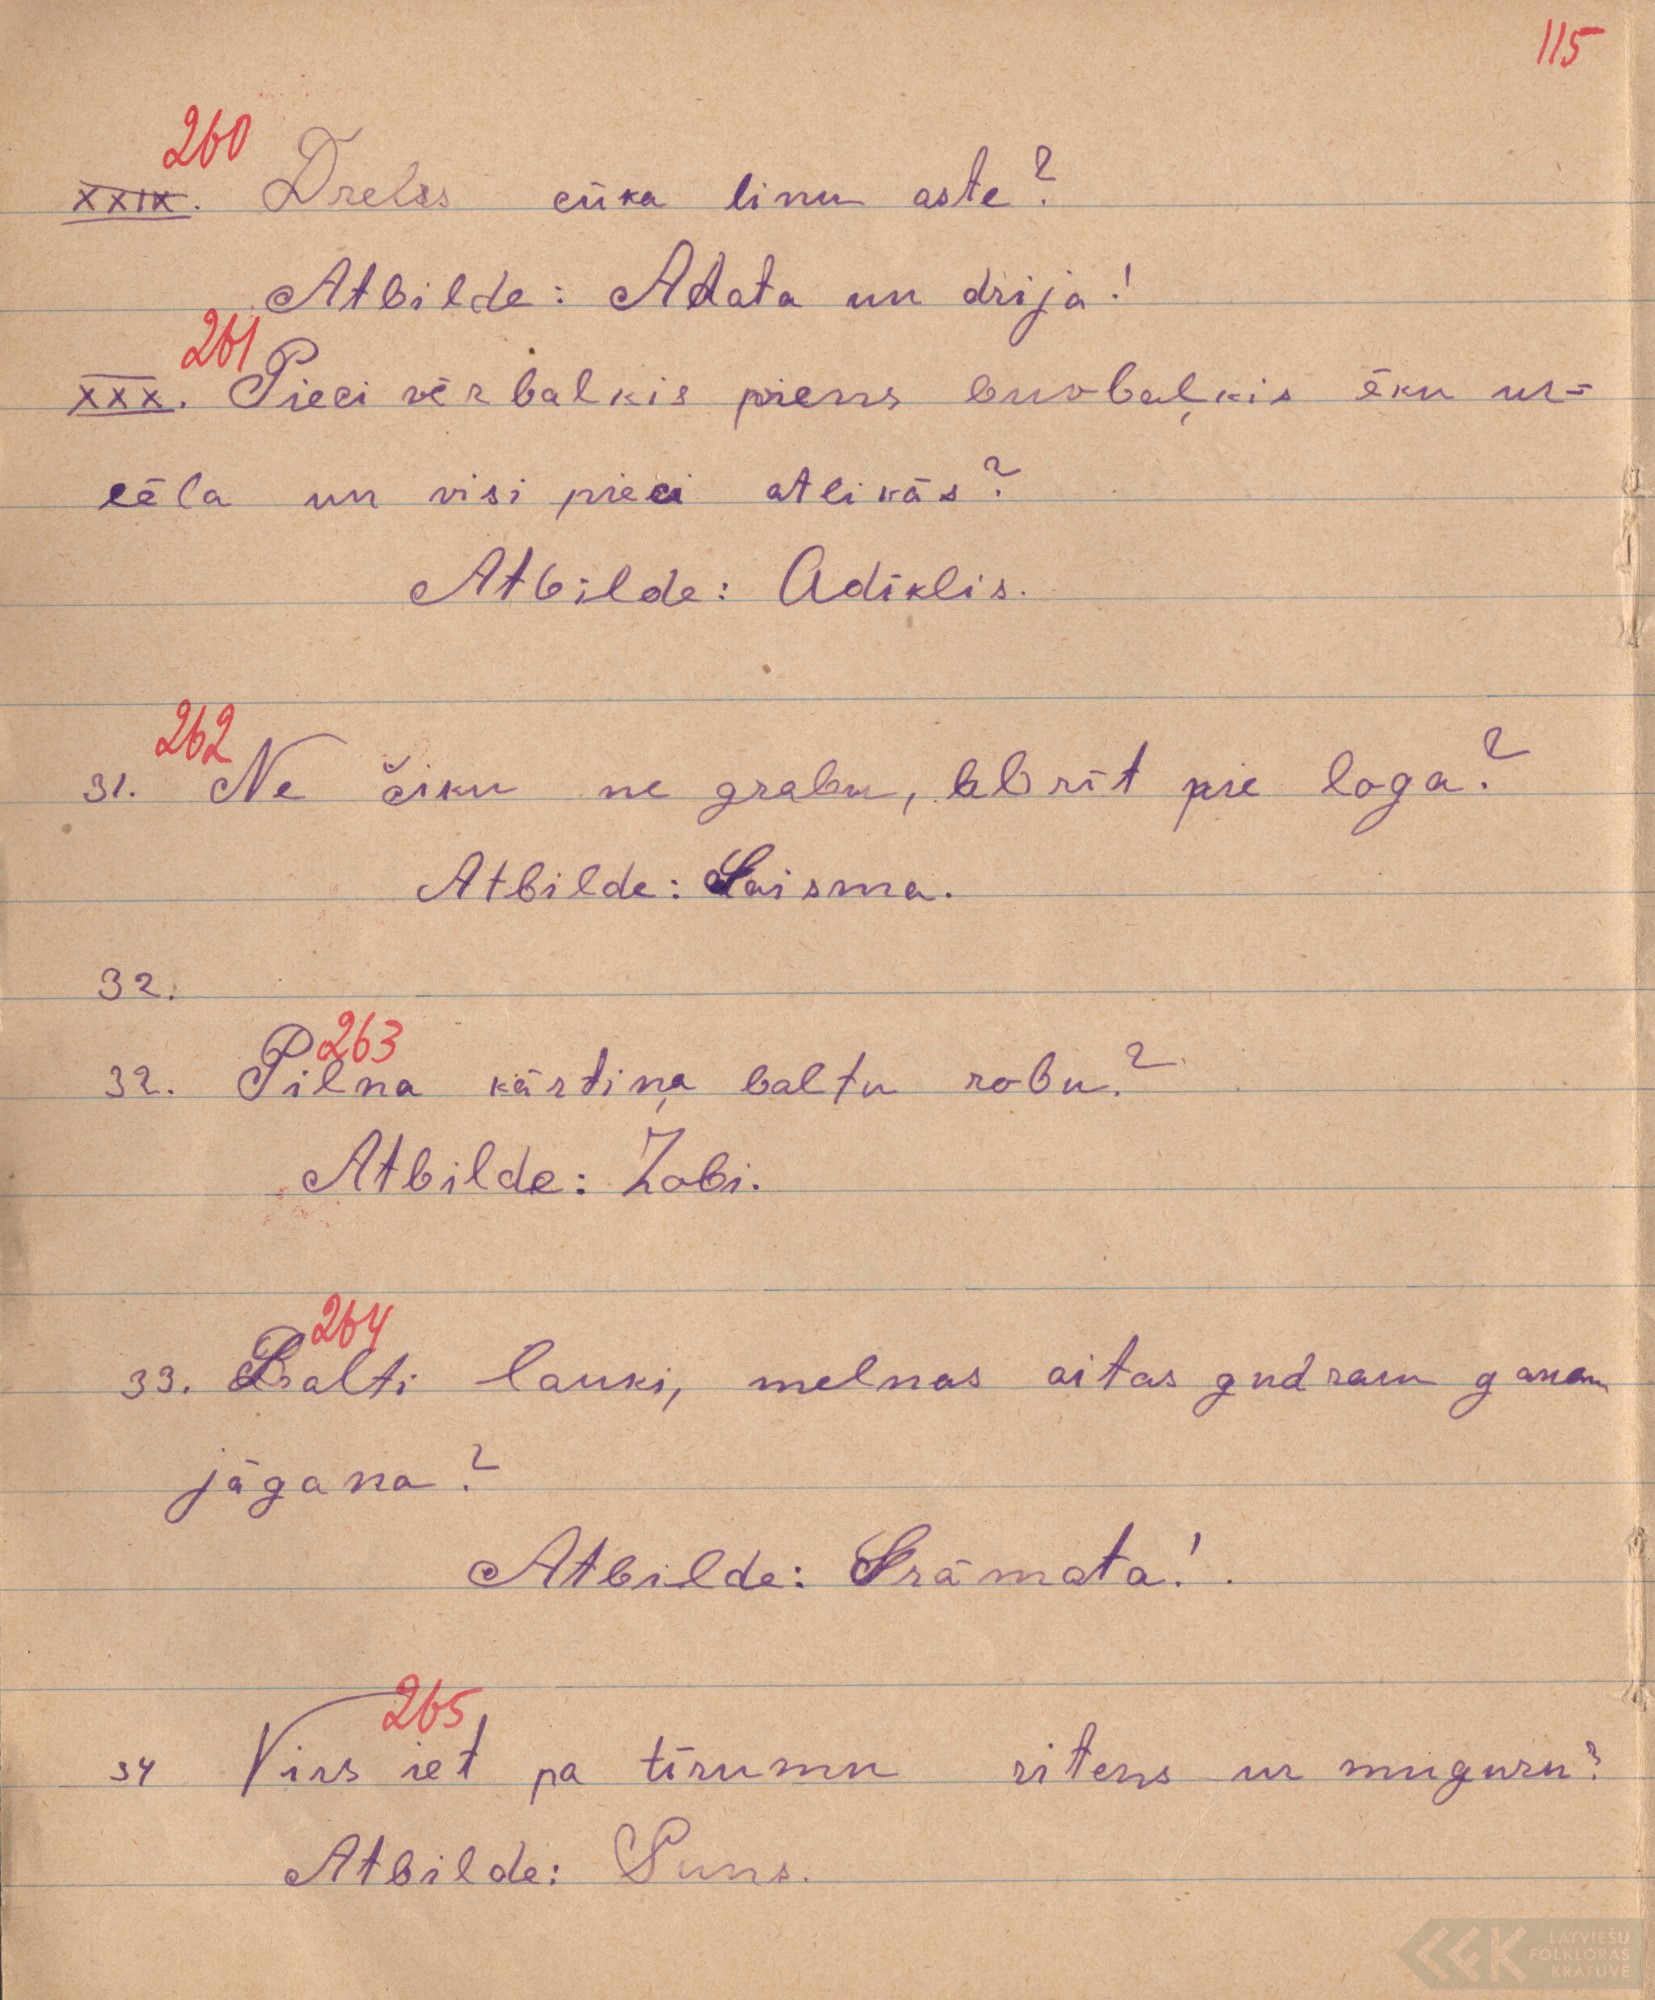 115
260
XXIX. Drelss cūka linu aste?
Atbilde: Adata un dzija!
261
XXX. Pieci vērbalkis piens buvbaļkis ēku uz=
cēla un visi pieci atlikās?
Atbilde: Adīklis.
262
31. Ne čiku ne grabu, brīt pie loga?
Atbilde: Gaisma.
32.
263
32. Pilna kārtiņa baltu zobu?
Atbilde: Zobi.
264
33. Balti lauki, melnas aitas gudram ganam
jāgana?
Atbilde: Grāmata!
265
34 Virs iet pa tīrumu ritens uz muguru?
Atbilde: Suns.
LATVIEŠU
FOLKLORAS
KRĀTUVE